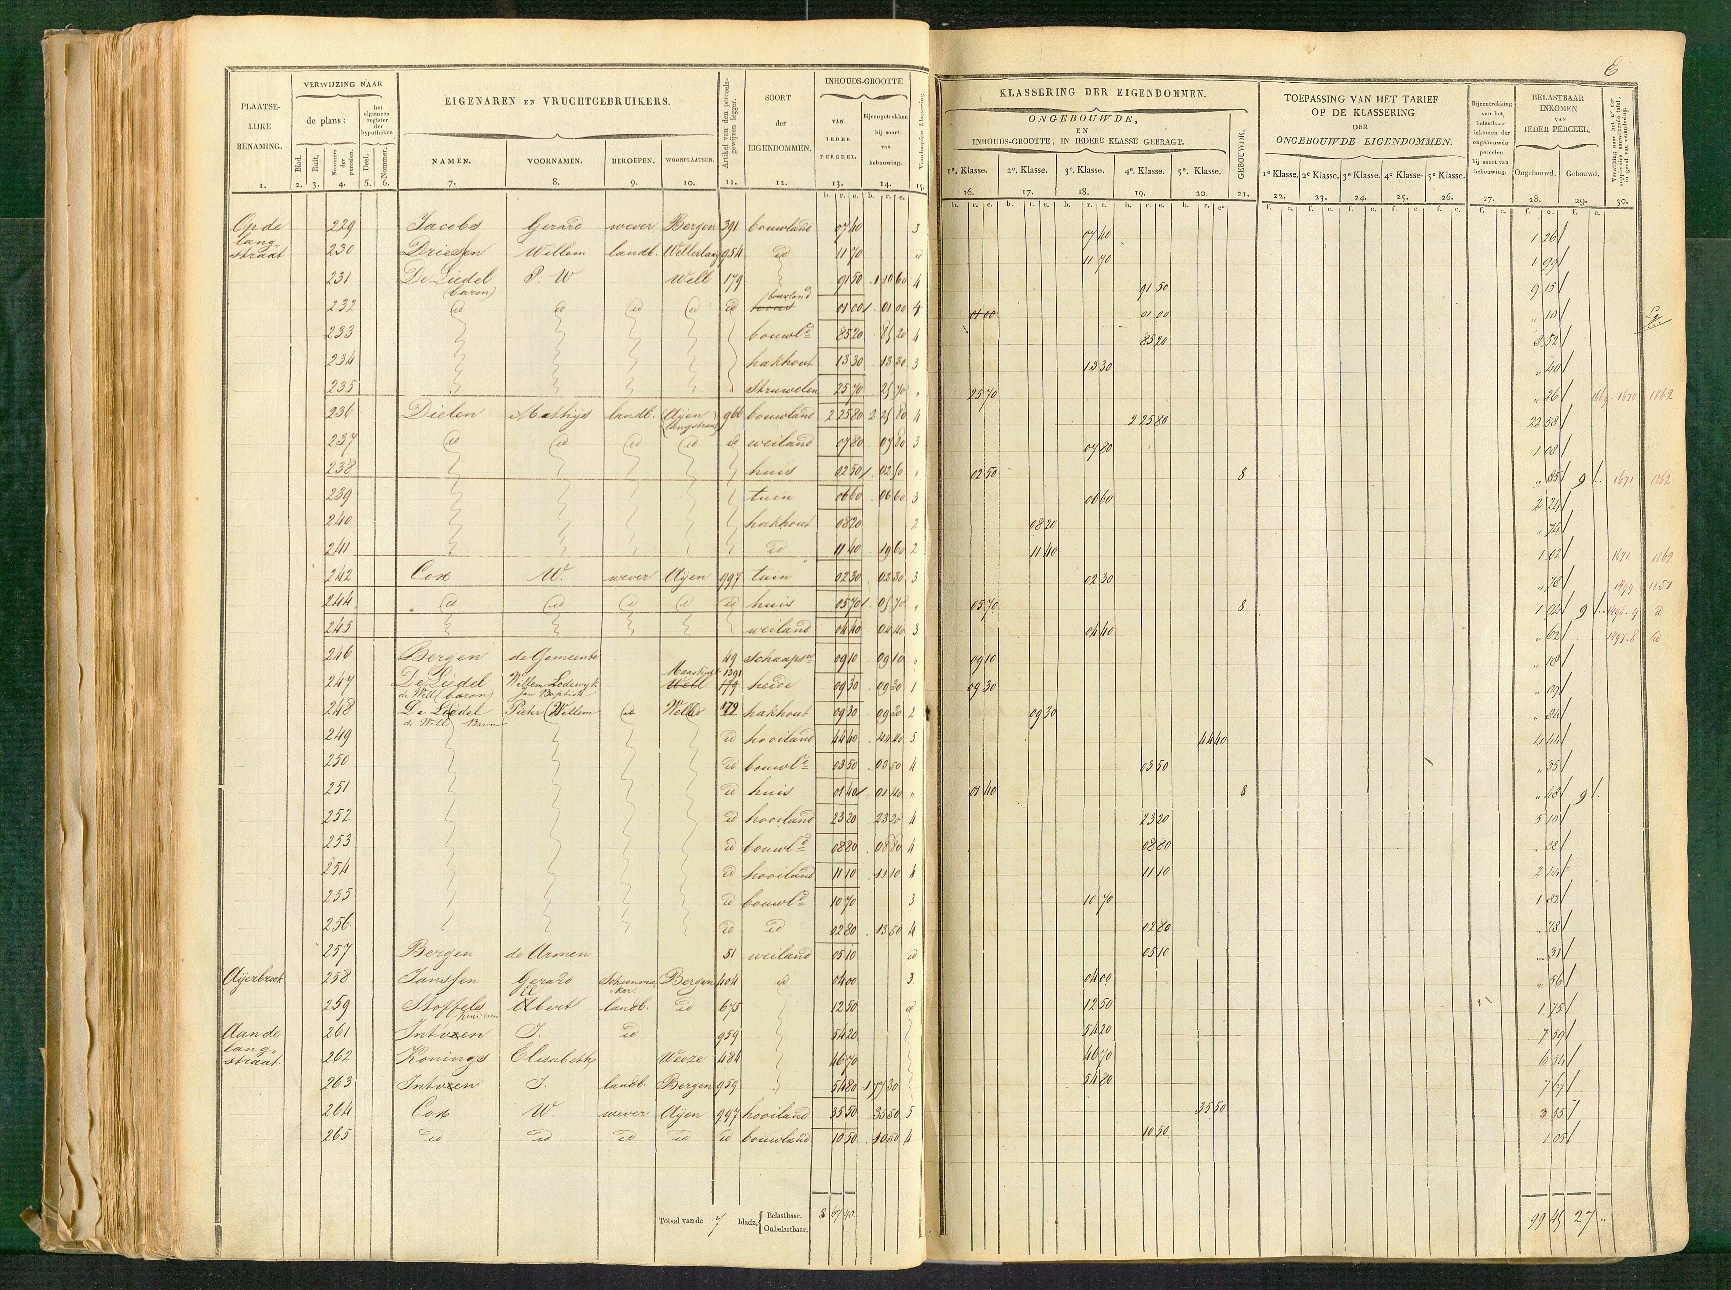 PLAATSE-LIJKE BENAMING. | VERWIJZING NAAR | EIGENAREN EN VRUCHTGEBRUIKERS. | Artikel van den perceels-gewijzen legger. | SOORT der EIGENDOMMEN. | INHOUDS-GROOTTE
de plans: | het algemeen register der hypotheken | VAN IEDER PERCEEL. | Bijeengetrokken bij soort van bebouwing.
Blad. | Ruit. | Nummers der perceelen. | Deel. | Nummer. | NAMEN. | VOORNAMEN. | BEROEPEN. | WOONPLAATSEN.
1. 2. 3. 4. 5. 6. 7. 8. 9. 10. 11. 12. 13. 14. 15.
Op de lang-straat 229 Jacobs Gerard wever Bergen 391 bouwland 07 40 3
230 Driessen Willem landb. 954 id 11 70 id
231 De Liedel (baron) P. W Well 179 91 50 1 10 60 4
232 id id id id id bouwland 01 00 01 00 4
233 bouwld 85 20 85 20 4
234 hakhout 13 30 13 30 3
235 struwelen 25 70 25 70 "
236 Dielen Mathijs landb. Aijen (langstraat) 966 bouwland 2 25 80 2 25 80 4
237 id id id id id weiland 07 80 07 80 3
238 huis 02 50 02 50 "
239 tuin 06 60 06 60 3
240 hakhout 08 20 2
241 id 11 40 19 60 2
242 Cox W. wever Aijen 997 tuin 02 30 02 30 3
244 id id id id id huis 05 70 05 70 "
245 weiland 04 40 04 40 3
246 Bergen de Gemeente 49 schaapsw 09 10 09 10 "
247 De Liedel de Well (baron) Willem Lodewyk Jan Baptiste Maastricht Well 1391 179 heide 09 30 09 30 1
248 De Liedel de Well Baron Pieter Willem id Well 179 hakhout 09 30 09 30 2
249 id hooiland 44 40 44 40 5
250 id bouwld 03 50 03 50 4
251 id huis 01 40 01 40 "
252 id hooiland 23 20 23 20 4
253 id bouwld 08 80 08 80 4
254 id hooiland 11 10 11 10 4
255 id bouwld 10 70 3
256 id id 02 80 13 50 4
257 Bergen de Armen 51 weiland 05 10 id
Aijerbroek 258 Janssen Gerard Schoenmaker Bergen 404 id 04 00 3
259 Stoffels Albert landb. id 675 12 50 id
Aan de lang-straat 261 Intvxen J. id 959 54 20
262 Konings Elisabeth Weeze 484 46 70
263 Intvxen J. landb. Bergen 959 54 80 1 77 30
264 Cox W wever Aijen 997 hooiland 35 50 35 50 5
265 id id id id id bouwland 10 50 10 50 4
Totaal van de bladz. { Belastbaar. Onbelastbaar.
KLASSERING DER EIGENDOMMEN. | TOEPASSING VAN HET TARIEF OP DE KLASSERING DER ONGEBOUWDE EIGENDOMMEN. | Bijeentrekking van het belastbaar inkomen der ongebouwde perceelen bij soort van bebouwing. | BELASTBAAR INKOMEN VAN IEDER PERCEEL.
ONGEBOUWDE, EN INHOUDS-GROOTTE, IN IEDERE KLASSE GEBRAGT. | GEBOUWDE.
1e. Klasse. 2e. Klasse. 3e. Klasse. 4e. Klasse. 5e. Klasse. | 1e Klasse. 2e Klasse. 3e Klasse. 4e Klasse. 5e Klasse. | Ongebouwd. Gebouwd.
16. 17. 18. 19. 20. 21. 22. 23. 24. 25. 26. 27. 28. 29. 30.
07 40 1 26
11 70 1 99
91 50 9 15
01 00 01 00 " 10
85 20 8 52
13 30 " 40
25 70 " 26 1862
2 25 80 22 58
07 80 1 08
02 50 8 " 85 9 1671 1862
06 60 2 24
08 20 " 74
11 40 1 02 1671 1862
02 30 " 78
05 70 8 1 94 9
04 40 " 62
09 10 " 18
09 30 " 09
09 30 " 84
44 40 4 44
03 50 " 35
01 40 8 " 48 9
23 20 5 10
08 80 " 88
11 10 2 44
10 70 1 82
02 80 " 28
05 10 " 31
04 00 " 56
12 50 1 75
54 20 7 59
46 70 6 54
54 80 7 67
35 50 3 55
10 50 1 05
99 45 27 "